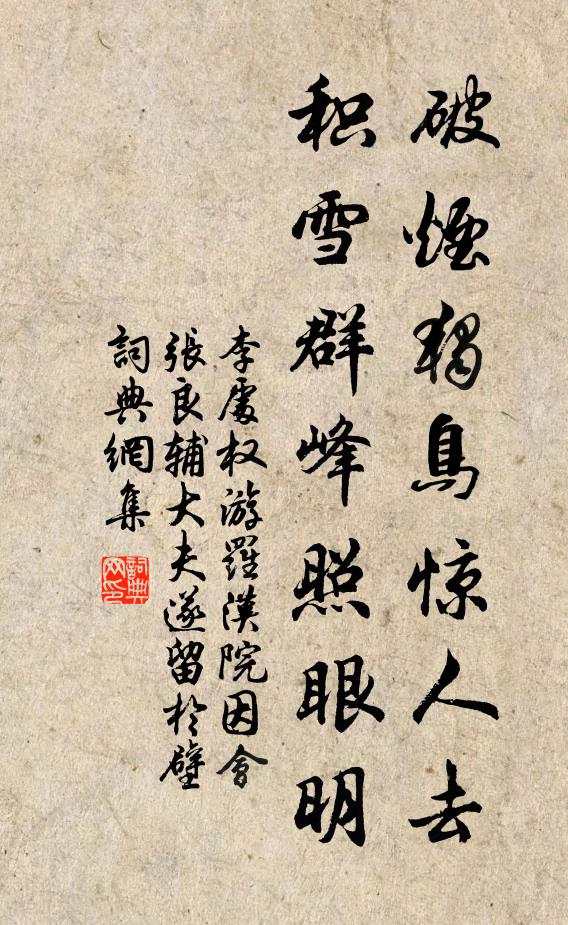 破烟独鸟惊人去
积雪群峰照眼明
李處权游羅漢院因會
張良輔大夫遂留於壁
詞典網集
詞典
网印